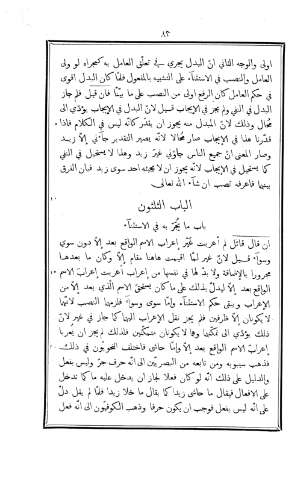 ٨٢
اولى والوجه الثاني انّ البدل يجري في تعلّق العامل به كمجراه لو ولى
العامل والنصب في الاستثناء على التشبيه بالمفعول فلمّا كان البدل اقوى
في حكم العامل كان الرفع اولى من النصب على ما بيّنّا فان قيل فلم جاز
البدل في النفي ولم يجز في الايجاب قيل لانّ البدل في الايجاب يؤدّي الى
محال وذلك لانّ المبدل منه يجوز ان يقدّر كانّه ليس في الكلام فاذا
قدّرنا هذا في الايجاب صار محالا لانّه يصير التقدير جاءني إلّا زيد
وصار المعنى انّ جميع الناس جاؤني غير زيد وهذا لا يستحيل في النفي
كما يستحيل في الايجاب لانّه يجوز ان لا يجيئه احد سوى زيد فبان الفرق
بينهما فاعرفه تصب ان شاء الله تعالى.
١٠
الباب الثلثون
باب ما يُجَرّ به في الاستثناء
ان قال قائل لم أعربت غَيْر إعراب الاسم الواقع بعد إلّا دون سوى
وسواء قيل لانّ غير لمّا اقيمت هاهنا مقام إلّا وكان ما بعدها
مجرورا بالاضافة ولا بدّ لها في نفسها من إعراب أعربت إعراب الاسم ١٥
الواقع بعد إلّا ليدلّ بذلك على ما كان يستحقّ الاسم الذي بعد إلّا من
الإعراب ويبقى حكم الاستثناء وإمّا سوى وسواء فلزمهما النصب لانّهما
لا يكونان إلّا ظرفين فلم يجز نقل الإعراب اليهما كما جاز في غير لانّ
ذلك يؤدّي الى تمكّنهما وهما لا يكونان متمكّنين فلذلك لم يجز ان يعربا
إعراب الاسم الواقع بعد إلّا وإمّا حاشى فاختلف النحويّون في ذلك
٢٠
فذهب سيبويه ومن تابعه من البصريّين الى انّه حرف جرّ وليس بفعل
والدليل على ذلك انّه لو كان فعلا لجاز ان يدخل عليه ما كما تدخل
على الافعال فيقال ما حاشى زيدا كما يقال ما خلا زيدا فلمّا لم يقل دلّ
على انّه ليس بفعل فوجب ان يكون حرفا وذهب الكوفيّون الى انّه فعل